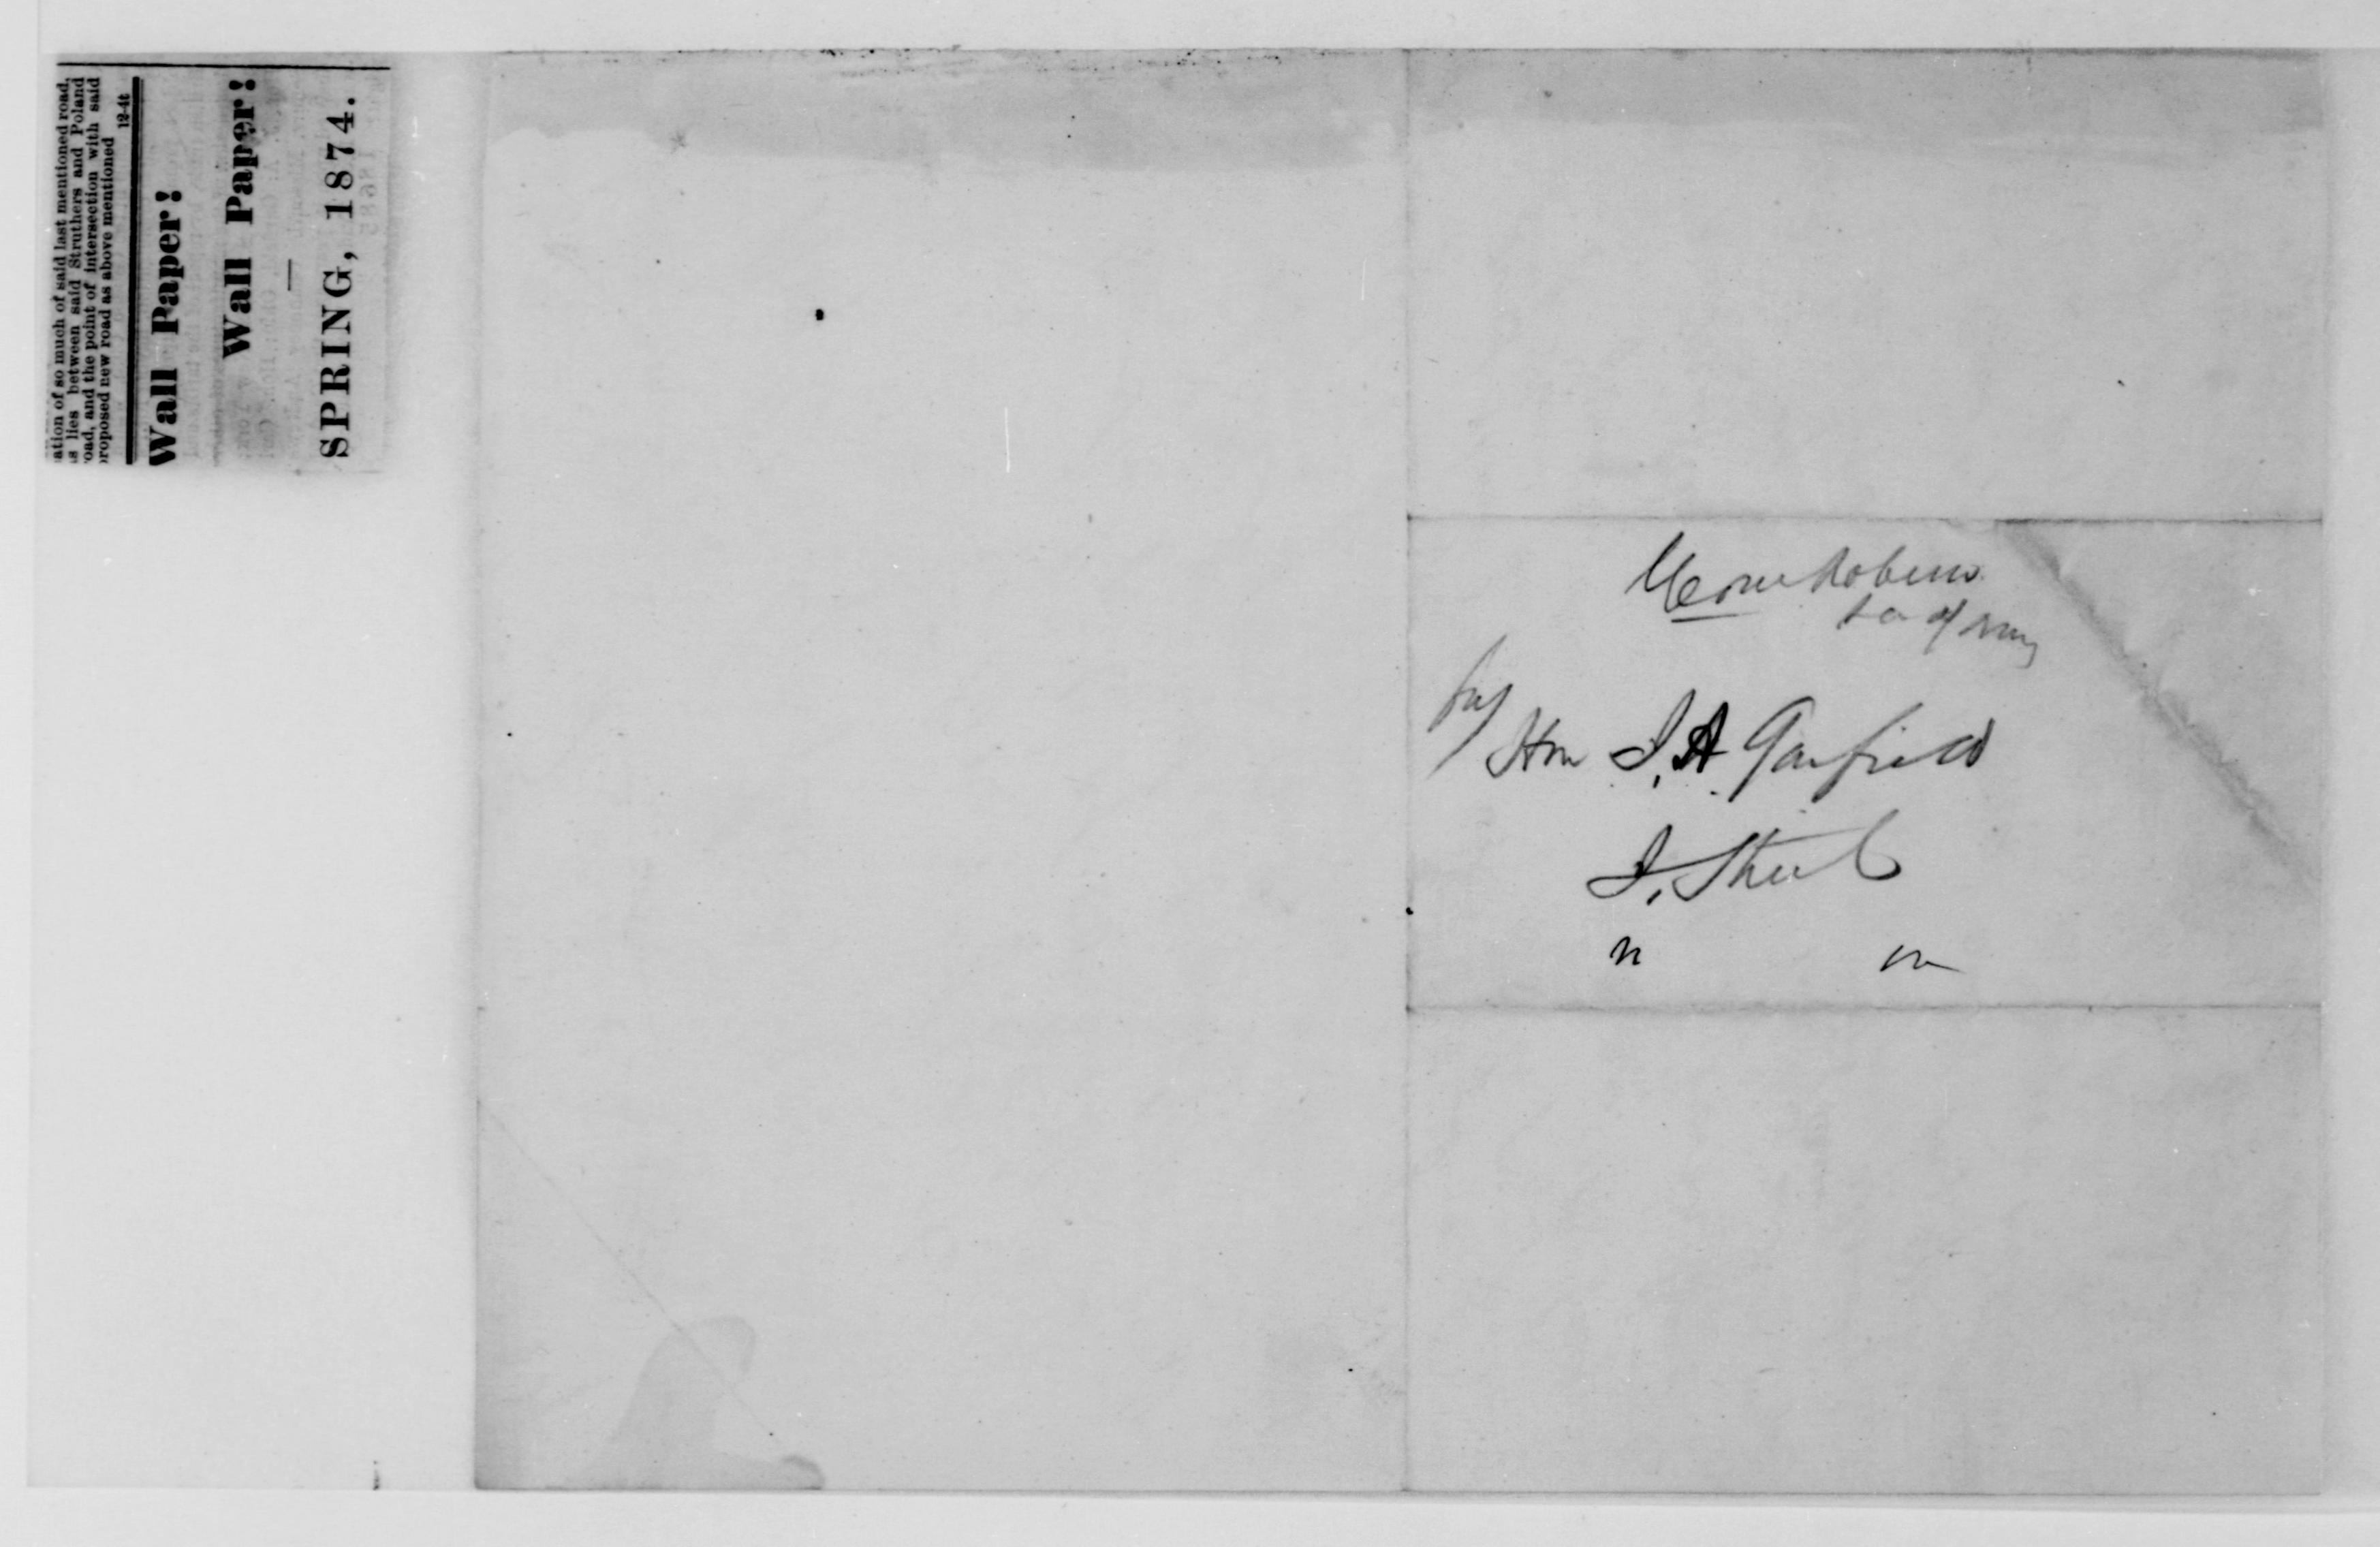 ation of so much of said last mentioned road,
as lies between said Struthers and Poland
road, and the point of intersection with said
proposed new road as above mentioned
12-4t
Wall Paper!
Wall Paper!
SPRING, 1874.
Hon J. A Garfield
I. Street